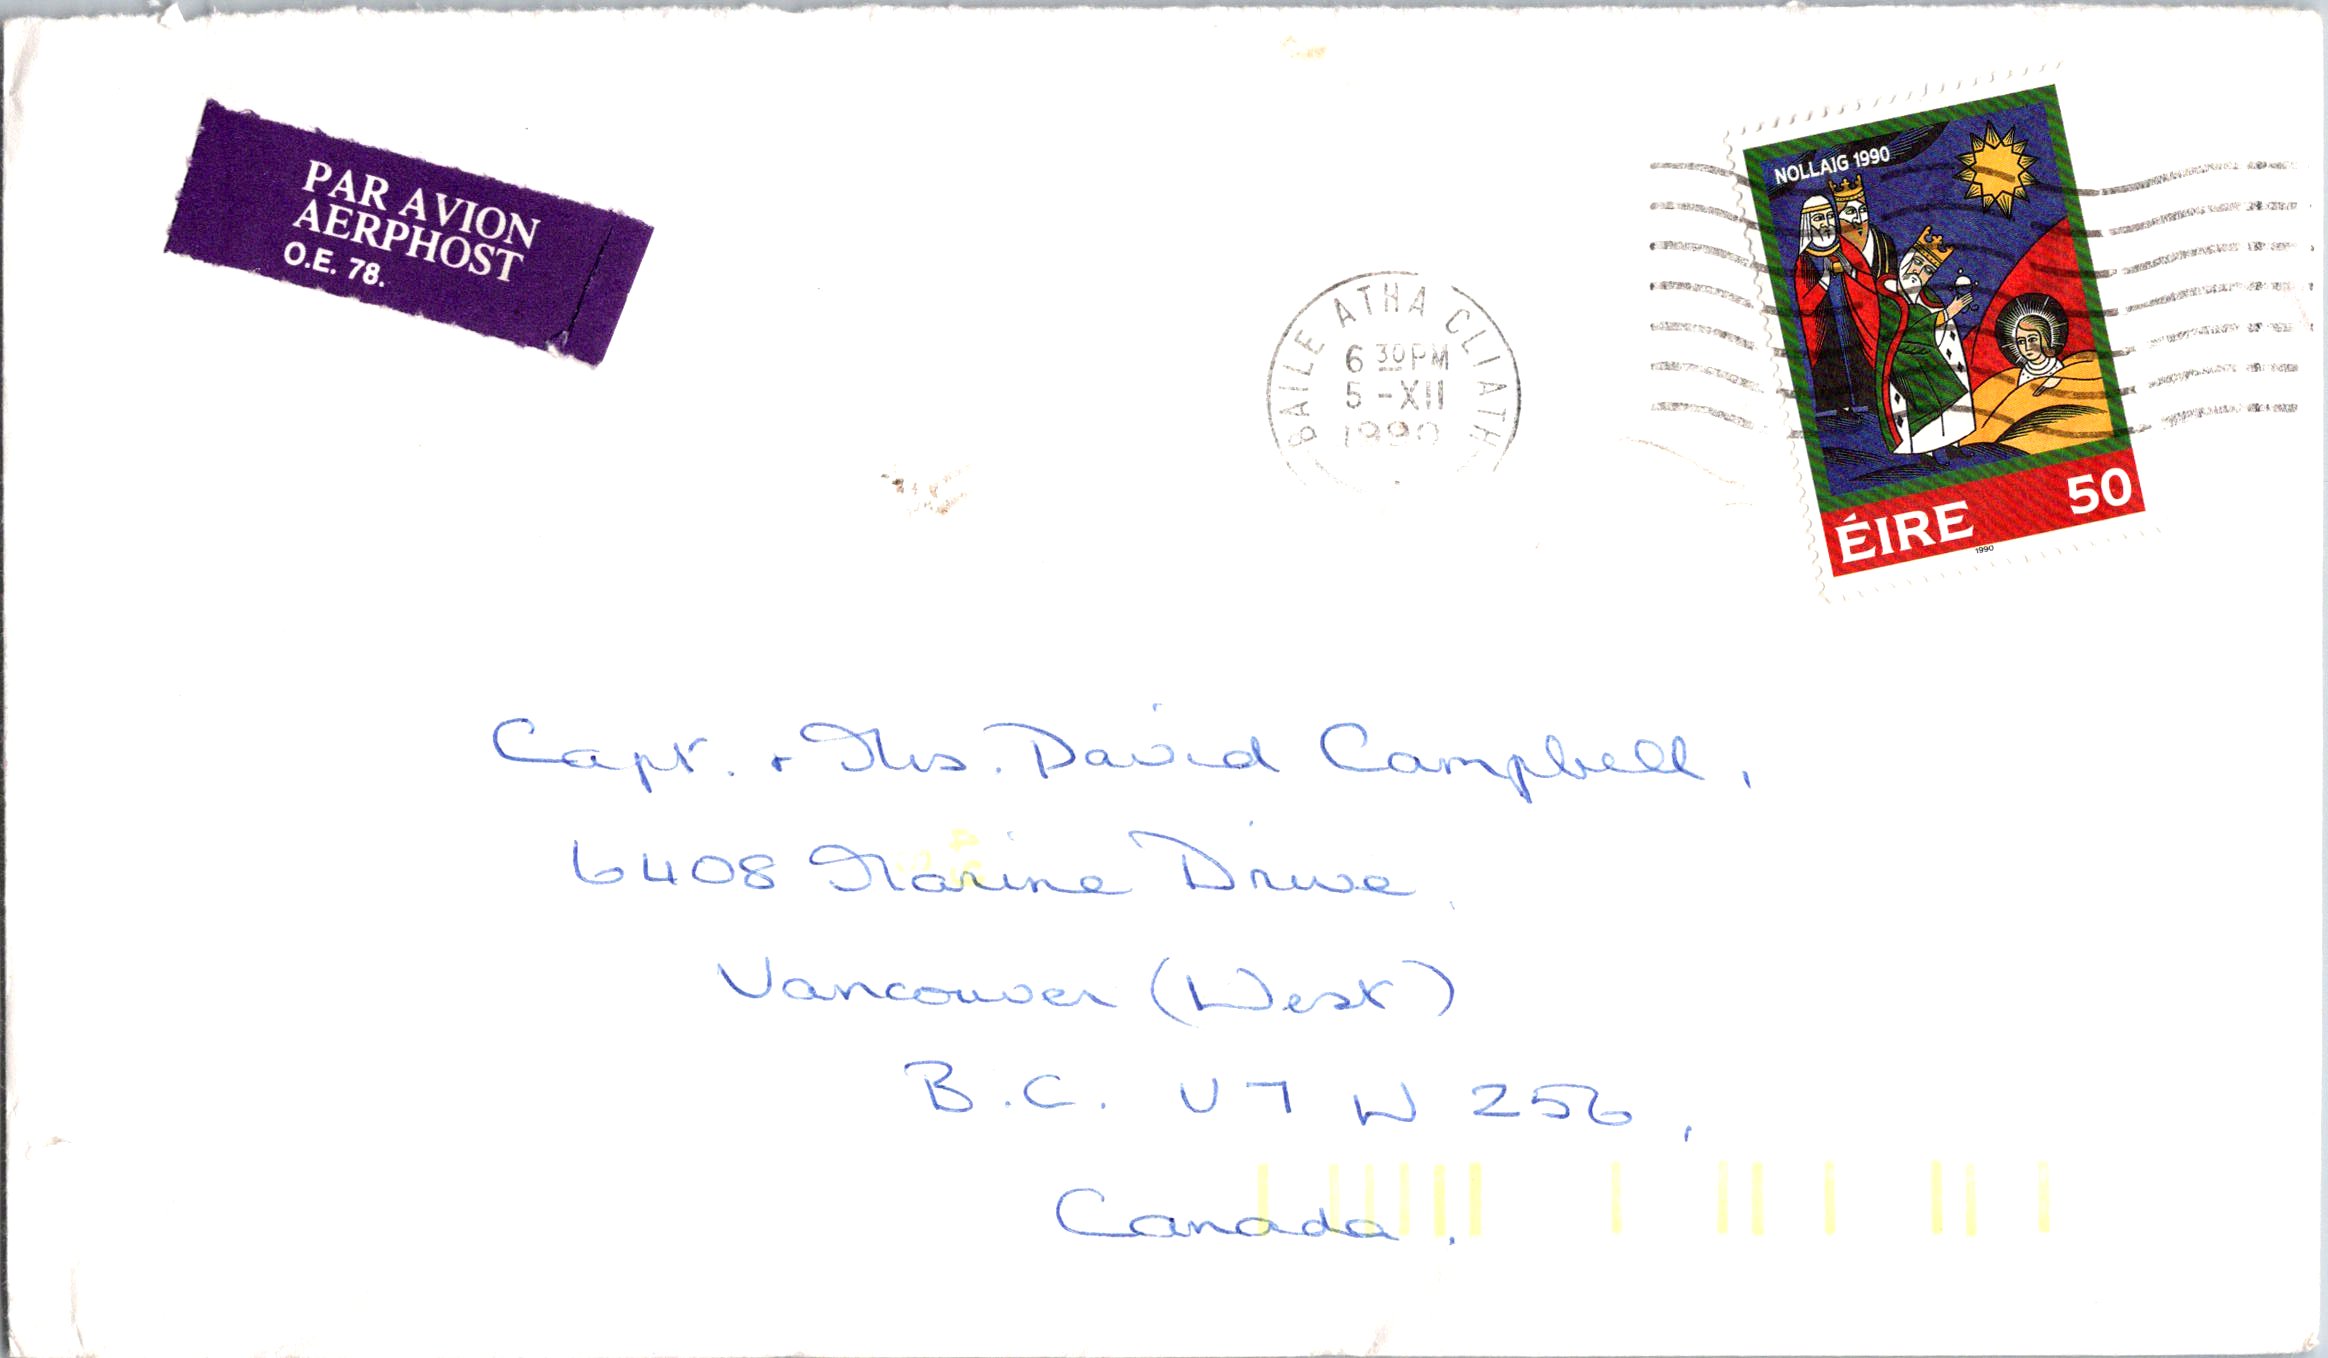 PAR AVION
AERPHOST
O.E. 78.
BAILE ATHA CLIATH
6 30PM
5-XII
1990
NOLLAIG 1990
ÉIRE 50
1990
Capt. + Mrs. David Campbell,
6408 Marine Drive,
Vancouver (West)
B.C. V7W 2S6,
Canada.